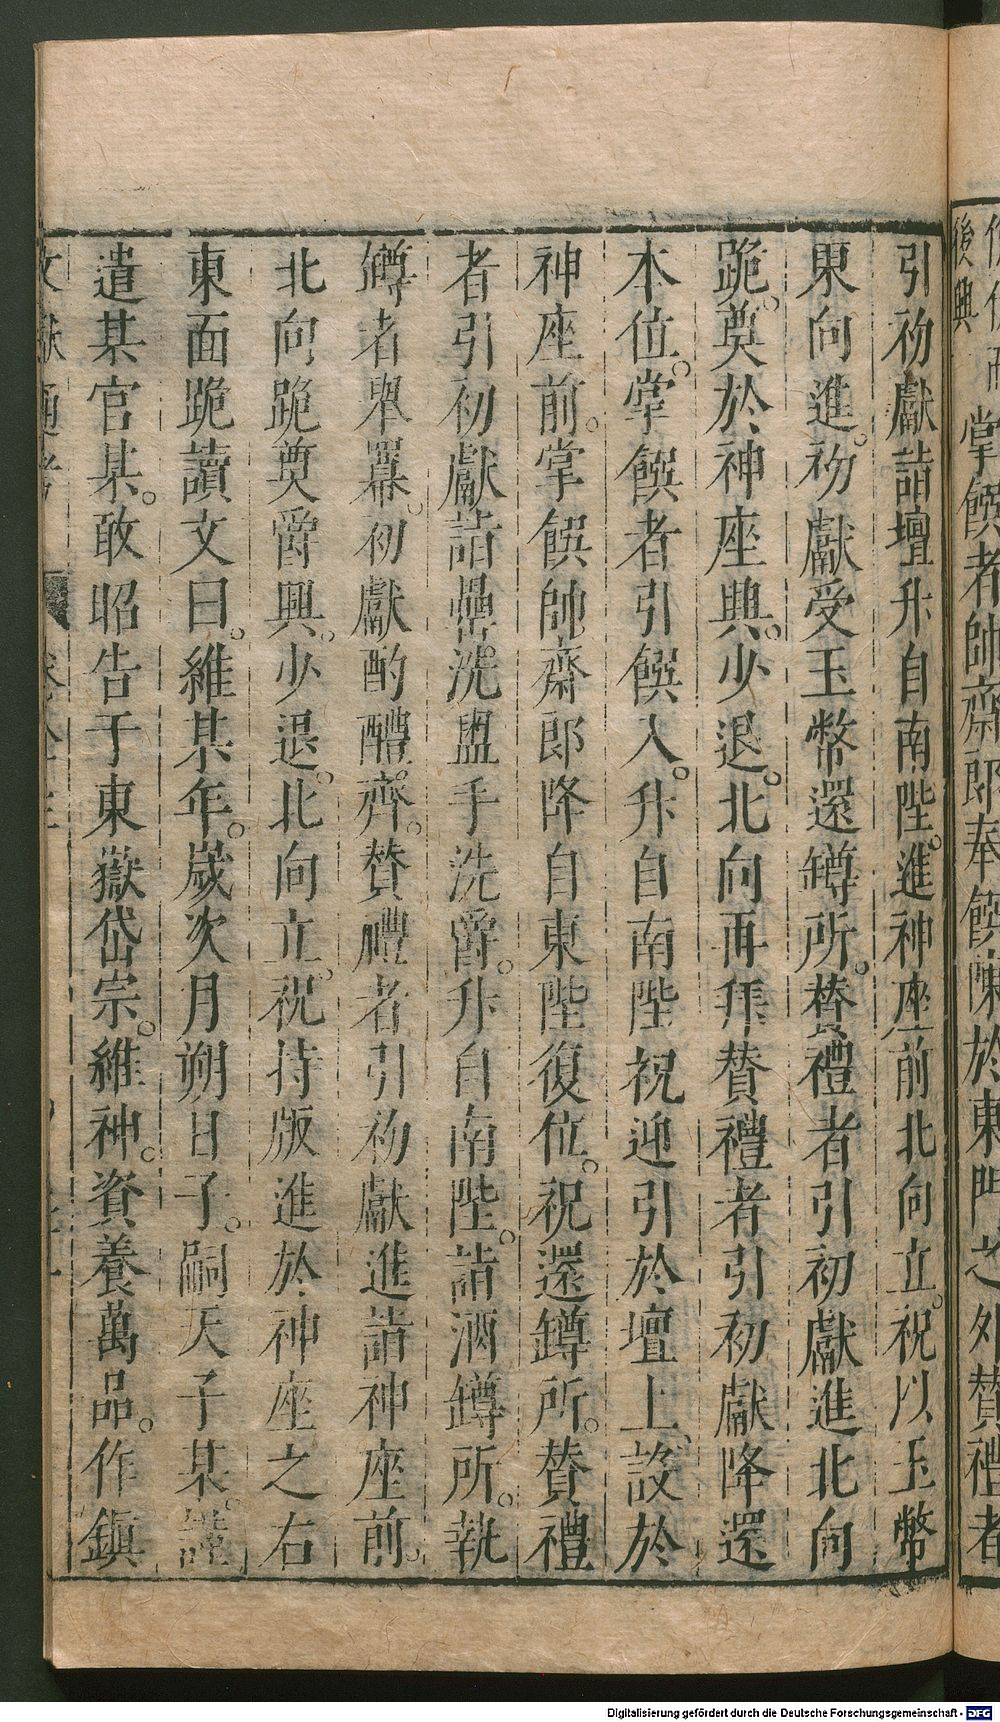 後興
掌饌者帥齋郎奉饌陳於東門之外贊禮者
引初獻詣壇升自南陛。進神座前北向立。祝以玉幣
東向進。初獻受玉幣還罇所。贊禮者引初獻進北向
跪。奠於神座興。少退。北向再拜贊禮者引初獻降還
本位。掌饌者引饌入。升自南陛祝迎引於壇上。設於
神座前。掌饌帥齋郎降自東陛復位。祝還罇所。贊禮
者引初獻詣罍洗盥手洗爵。升自南陛。詣酒罇所。執
罇者舉羃。初獻酌醴齊。贊禮者引初獻進詣神座前。
北向跪奠爵興。少退。北向立。祝持版進於神座之右
東面跪讀文曰。維某年。歲次月朔日子。嗣天子某。謹
遣某官某。敢昭告于東嶽岱宗。維神。資養萬品。作鎮
Digitalisierung gefördert durch die Deutsche Forschungsgemeinschaft - DFG